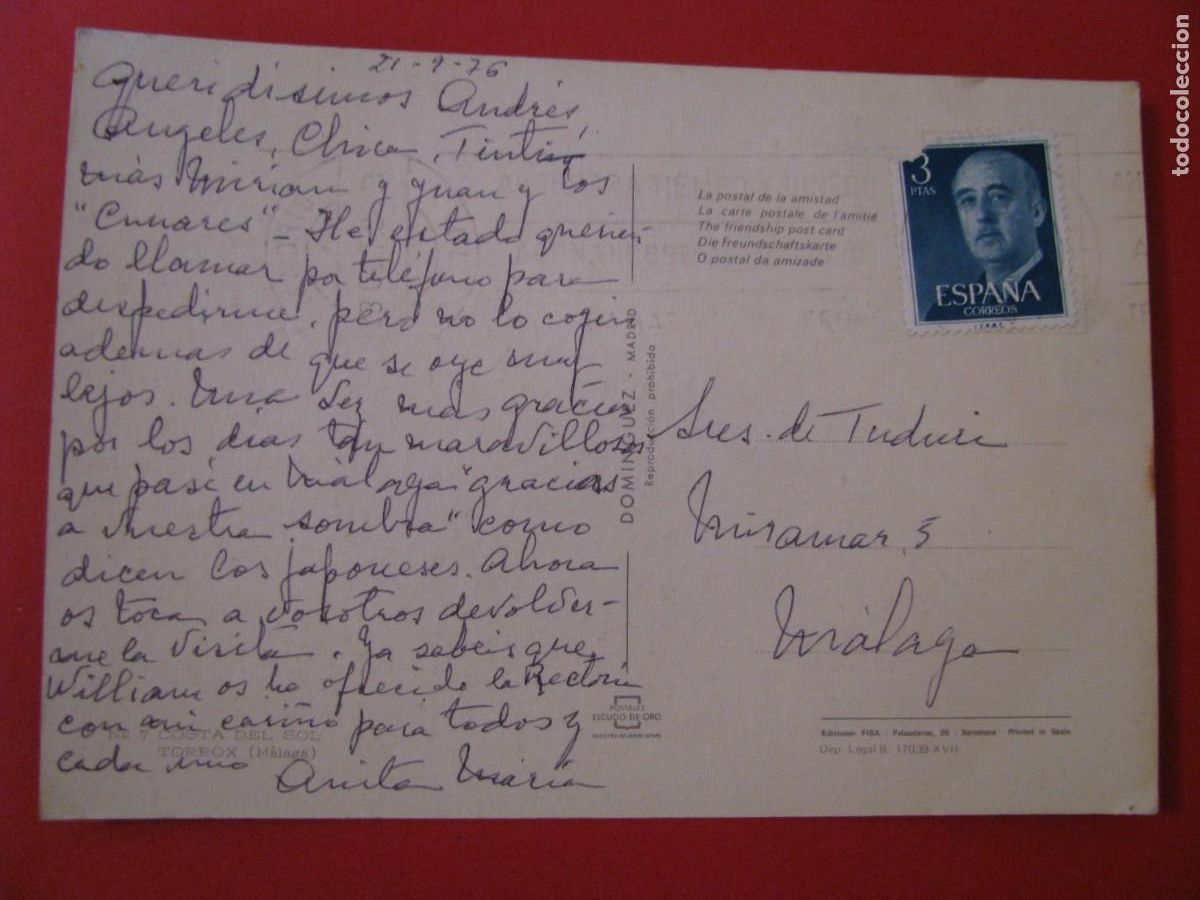 21-9-76
Queridísimos Andrés,
Angeles, Chica, Tintín
más Miriam y Juan y los
"Cunares" - He estado querien
do llamar por teléfono para
despedirme, pero no lo cogen
ademas de que se oye muy
lejos. Una vez mas gracias
por los dias tan maravillosos
que pasé en Málaga "gracias
a vuestra sombra" como
dicen los japoneses. Ahora
os toca a vosotros devolver-
me la visita. Ya sabeis que
William os ha ofrecido la Rectoría
con mi cariño para todos y
cada uno
Anita María
Nº 7 COSTA DEL SOL
TORROX (Málaga)
La postal de la amistad
La carte postale de l'amitié
The friendship post card
Die Freundschaftskarte
O postal da amizade
DOMINGUEZ - MADRID
Reproducción prohibida
POSTALES
ESCUDO DE ORO
3
PTAS
ESPAÑA
CORREOS
Sres. de Tuduri
Miramar, 5
Málaga
Ediciones FISA - Palaudarias, 26 - Barcelona - Printed in Spain
Dep. Legal B. 17039-XVII
todocoleccion